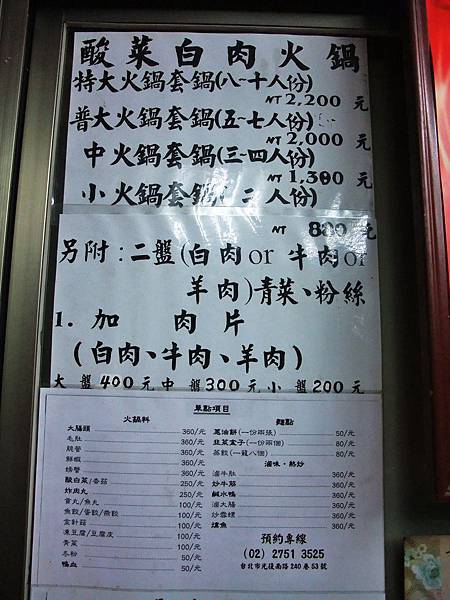 酸菜白肉火鍋
特大火鍋套鍋(八~十人份)
NT 2,200 元
普大火鍋套鍋(五~七人份)
NT 2,000 元
中火鍋套鍋(三~四人份)
NT 1,380 元
小火鍋套鍋( 二人份)
NT 880 元
另附:二盤(白肉or 牛肉or
羊肉)青菜、粉絲
1. 加 肉 片
(白肉、牛肉、羊肉)
大 盤 400 元 中 盤 300 元 小 盤 200 元
單點項目
火鍋料
大腸頭 360/元
毛肚 360/元
脆管 360/元
鮮蝦 360/元
螃蟹 360/元
酸白菜/香菇 250/元
炸肉丸 250/元
貢丸/魚丸 100/元
魚餃/蛋餃/燕餃 100/元
金針菇 100/元
凍豆腐/豆腐皮 100/元
青菜 100/元
冬粉 50/元
鴨血 50/元
麵點
蔥油餅(一份兩張) 80/元
韭菜盒子(一份兩個) 80/元
蒸餃(一籠八個) 80/元
滷味、熱炒
滷牛肚 360/元
炒牛筋 360/元
鹹水鴨 360/元
滷大腸 360/元
炒雪螺 360/元
燻魚 360/元
預約專線
(02) 2751 3525
台北市光復南路 240 巷 53 號